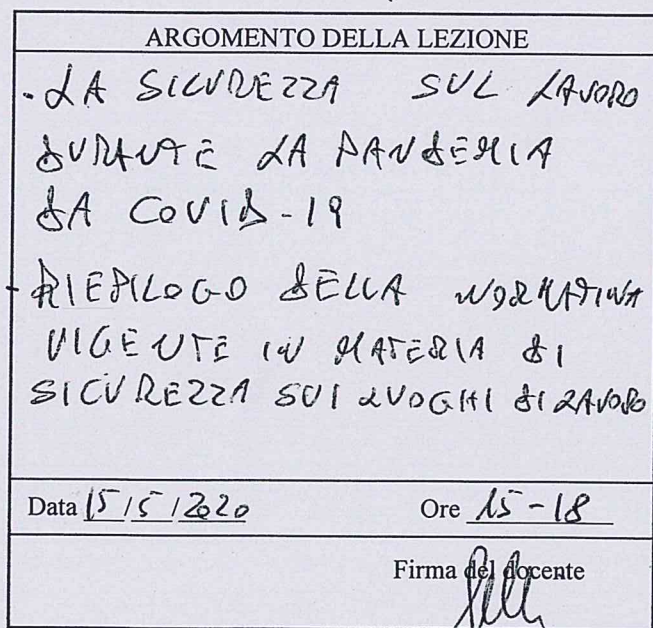 ARGOMENTO DELLA LEZIONE
- LA SICUREZZA SUL LAVORO
DURANTE LA PANDEMIA
DA COVID-19
- RIEPILOGO DELLA NORMATIVA
VIGENTE IN MATERIA DI
SICUREZZA SUI LUOGHI DI LAVORO
Data 15/5/2020 Ore 15-18
Firma del docente